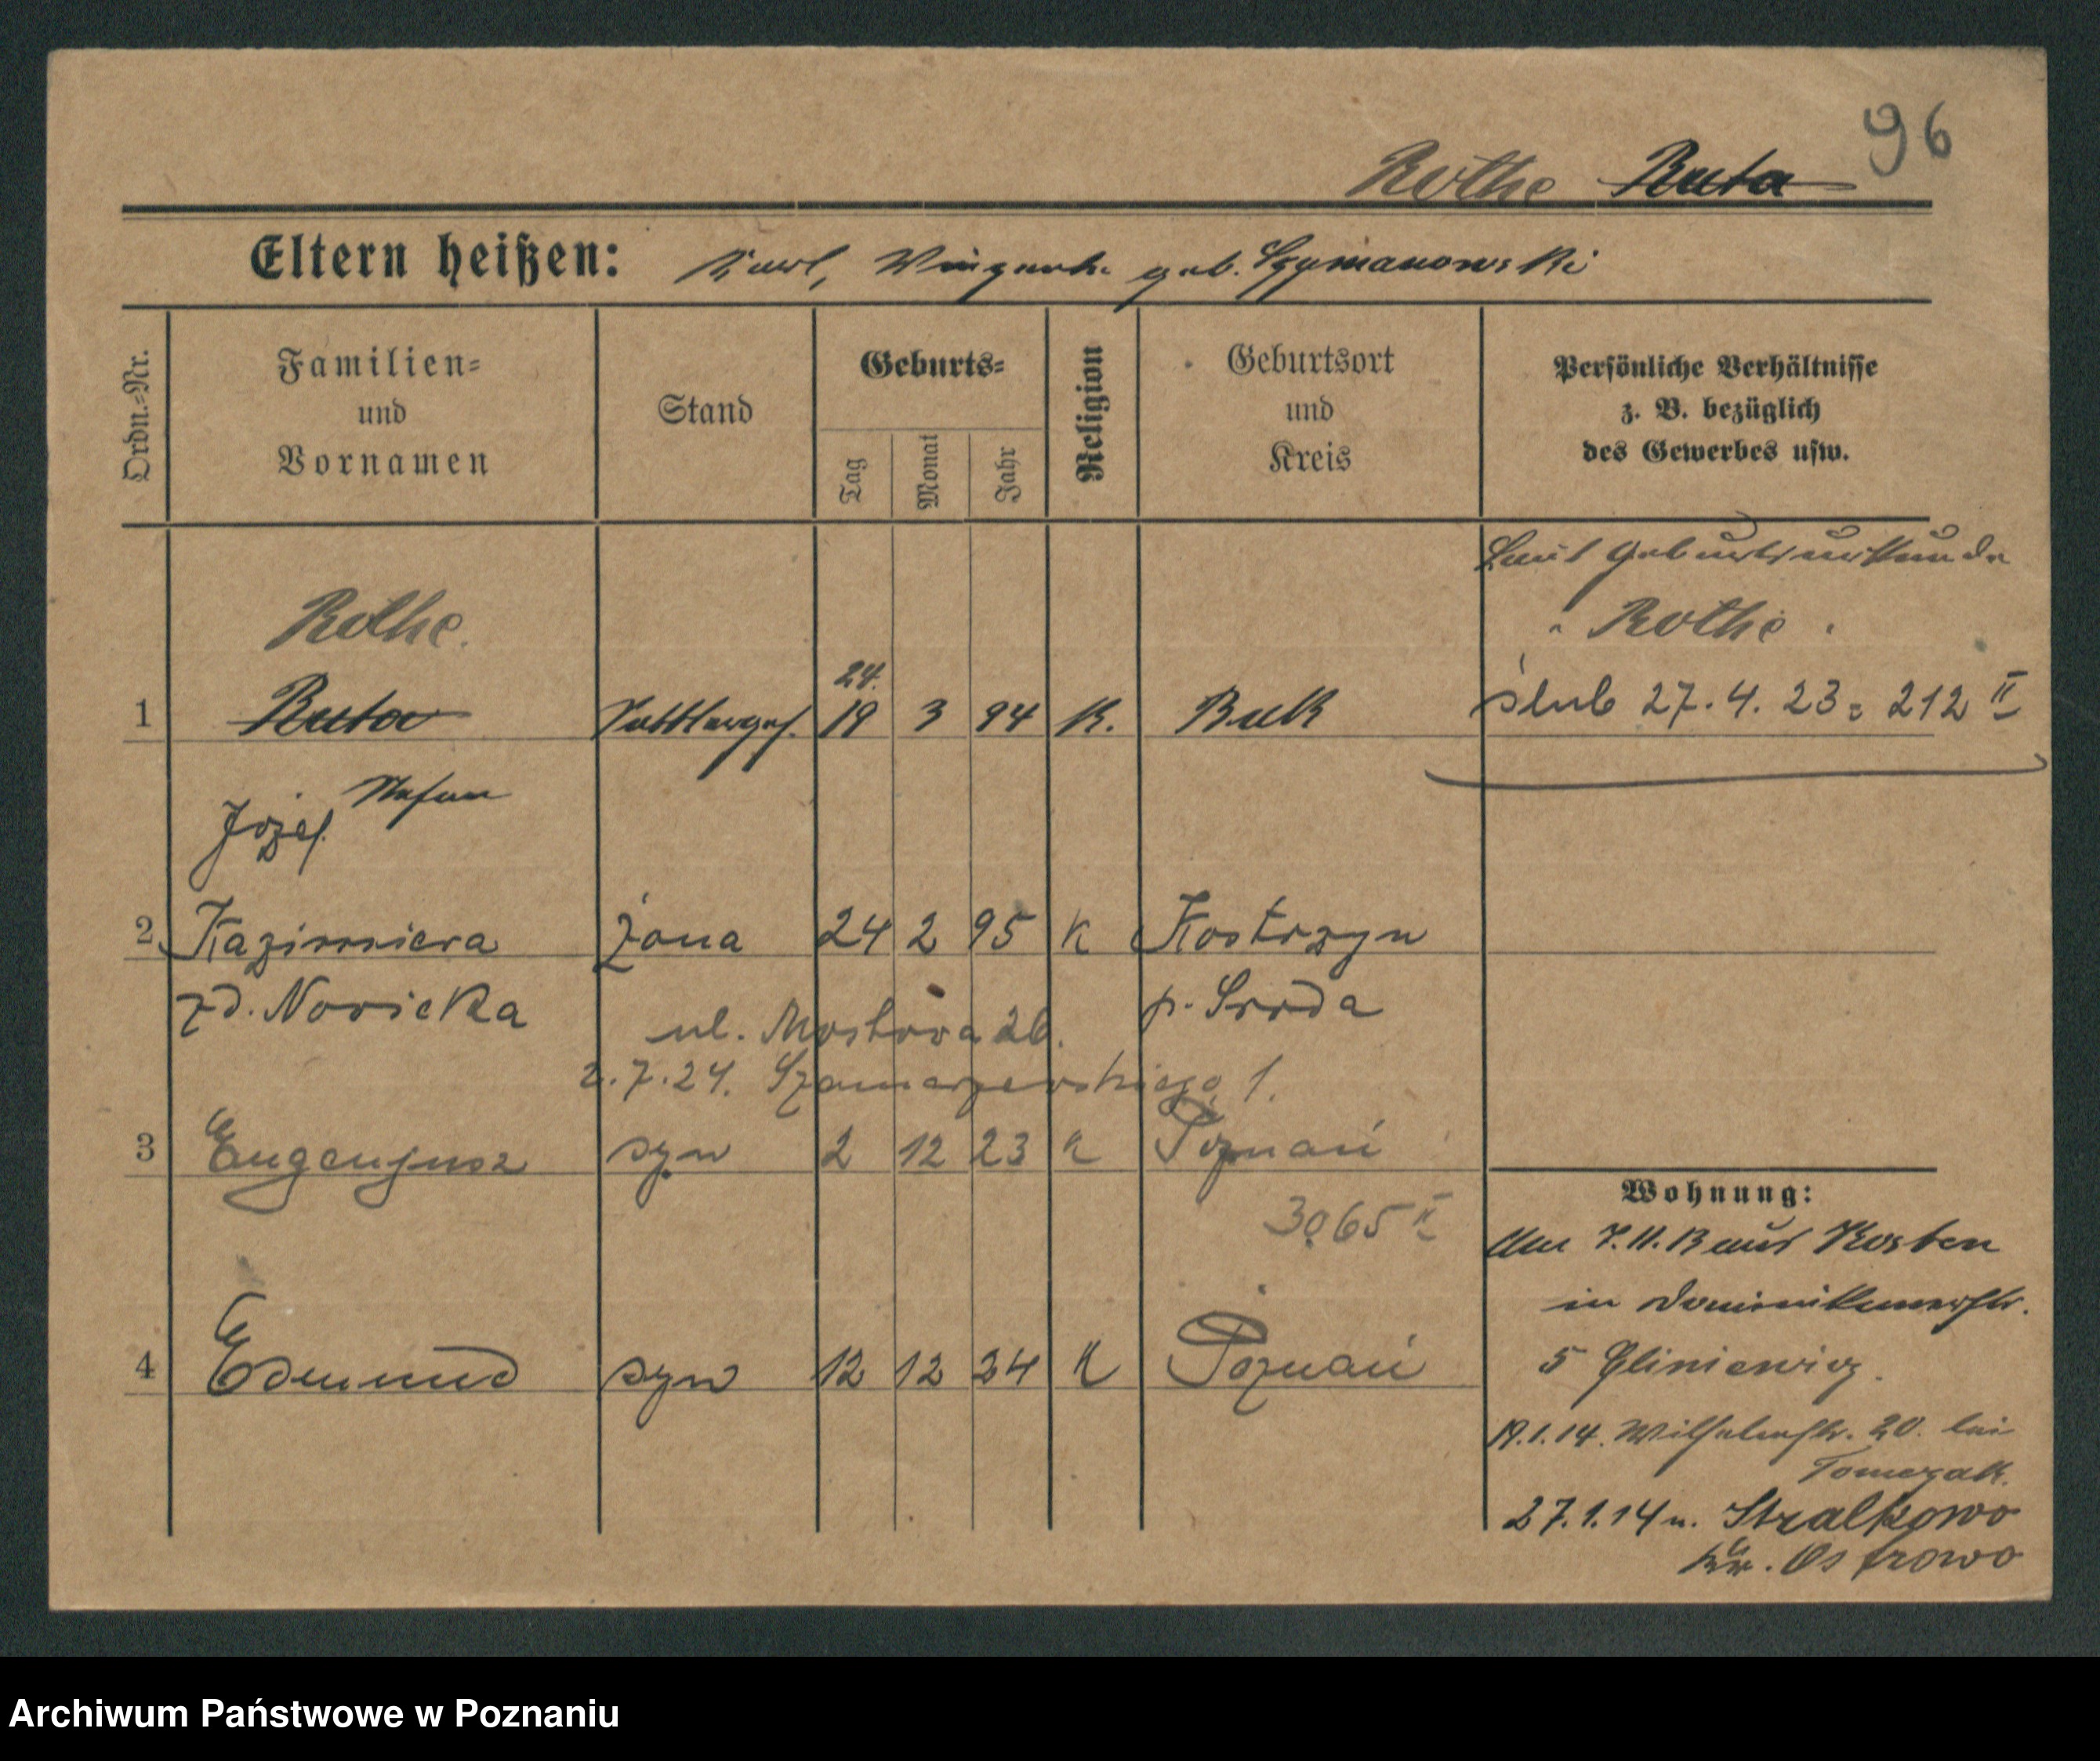 96
Rothe Ruta
Eltern heißen: Karl, geb. Szymanowski
Ordn.-Nr.
Familien-
und
Vornamen
Stand
Geburts-
Tag
Monat
Jahr
Religion
Geburtsort
und
Kreis
Persönliche Verhältnisse
z. B. bezüglich
des Gewerbes usw.
Laut Geburtsurkunde
"Rothe".
Rothe.
24.
1 Ruta Sattlerges. 19 3 94 K. Buk ślub 27.4.23 = 212 II
Stefan
Józef
2 Kazimiera żona 24 2 95 K Kostrzyn
zd. Novicka p. Sroda
ul. Mostova 26.
2.7.24. Szamarzewskiego 1.
3 Eugenjusz syn 2 12 23 K Poznań
3065 II
4 Edmund syn 12 12 24 K Poznań
Wohnung:
Am 7.11.13 aus Kosten
in Dominikanerstr.
5 Gliniewicz.
19.1.14. Wilhelmstr. 20. bei
Tomczak.
27.1.14 n. Stralkowo
Kr. Ostrowo
Archiwum Państwowe w Poznaniu